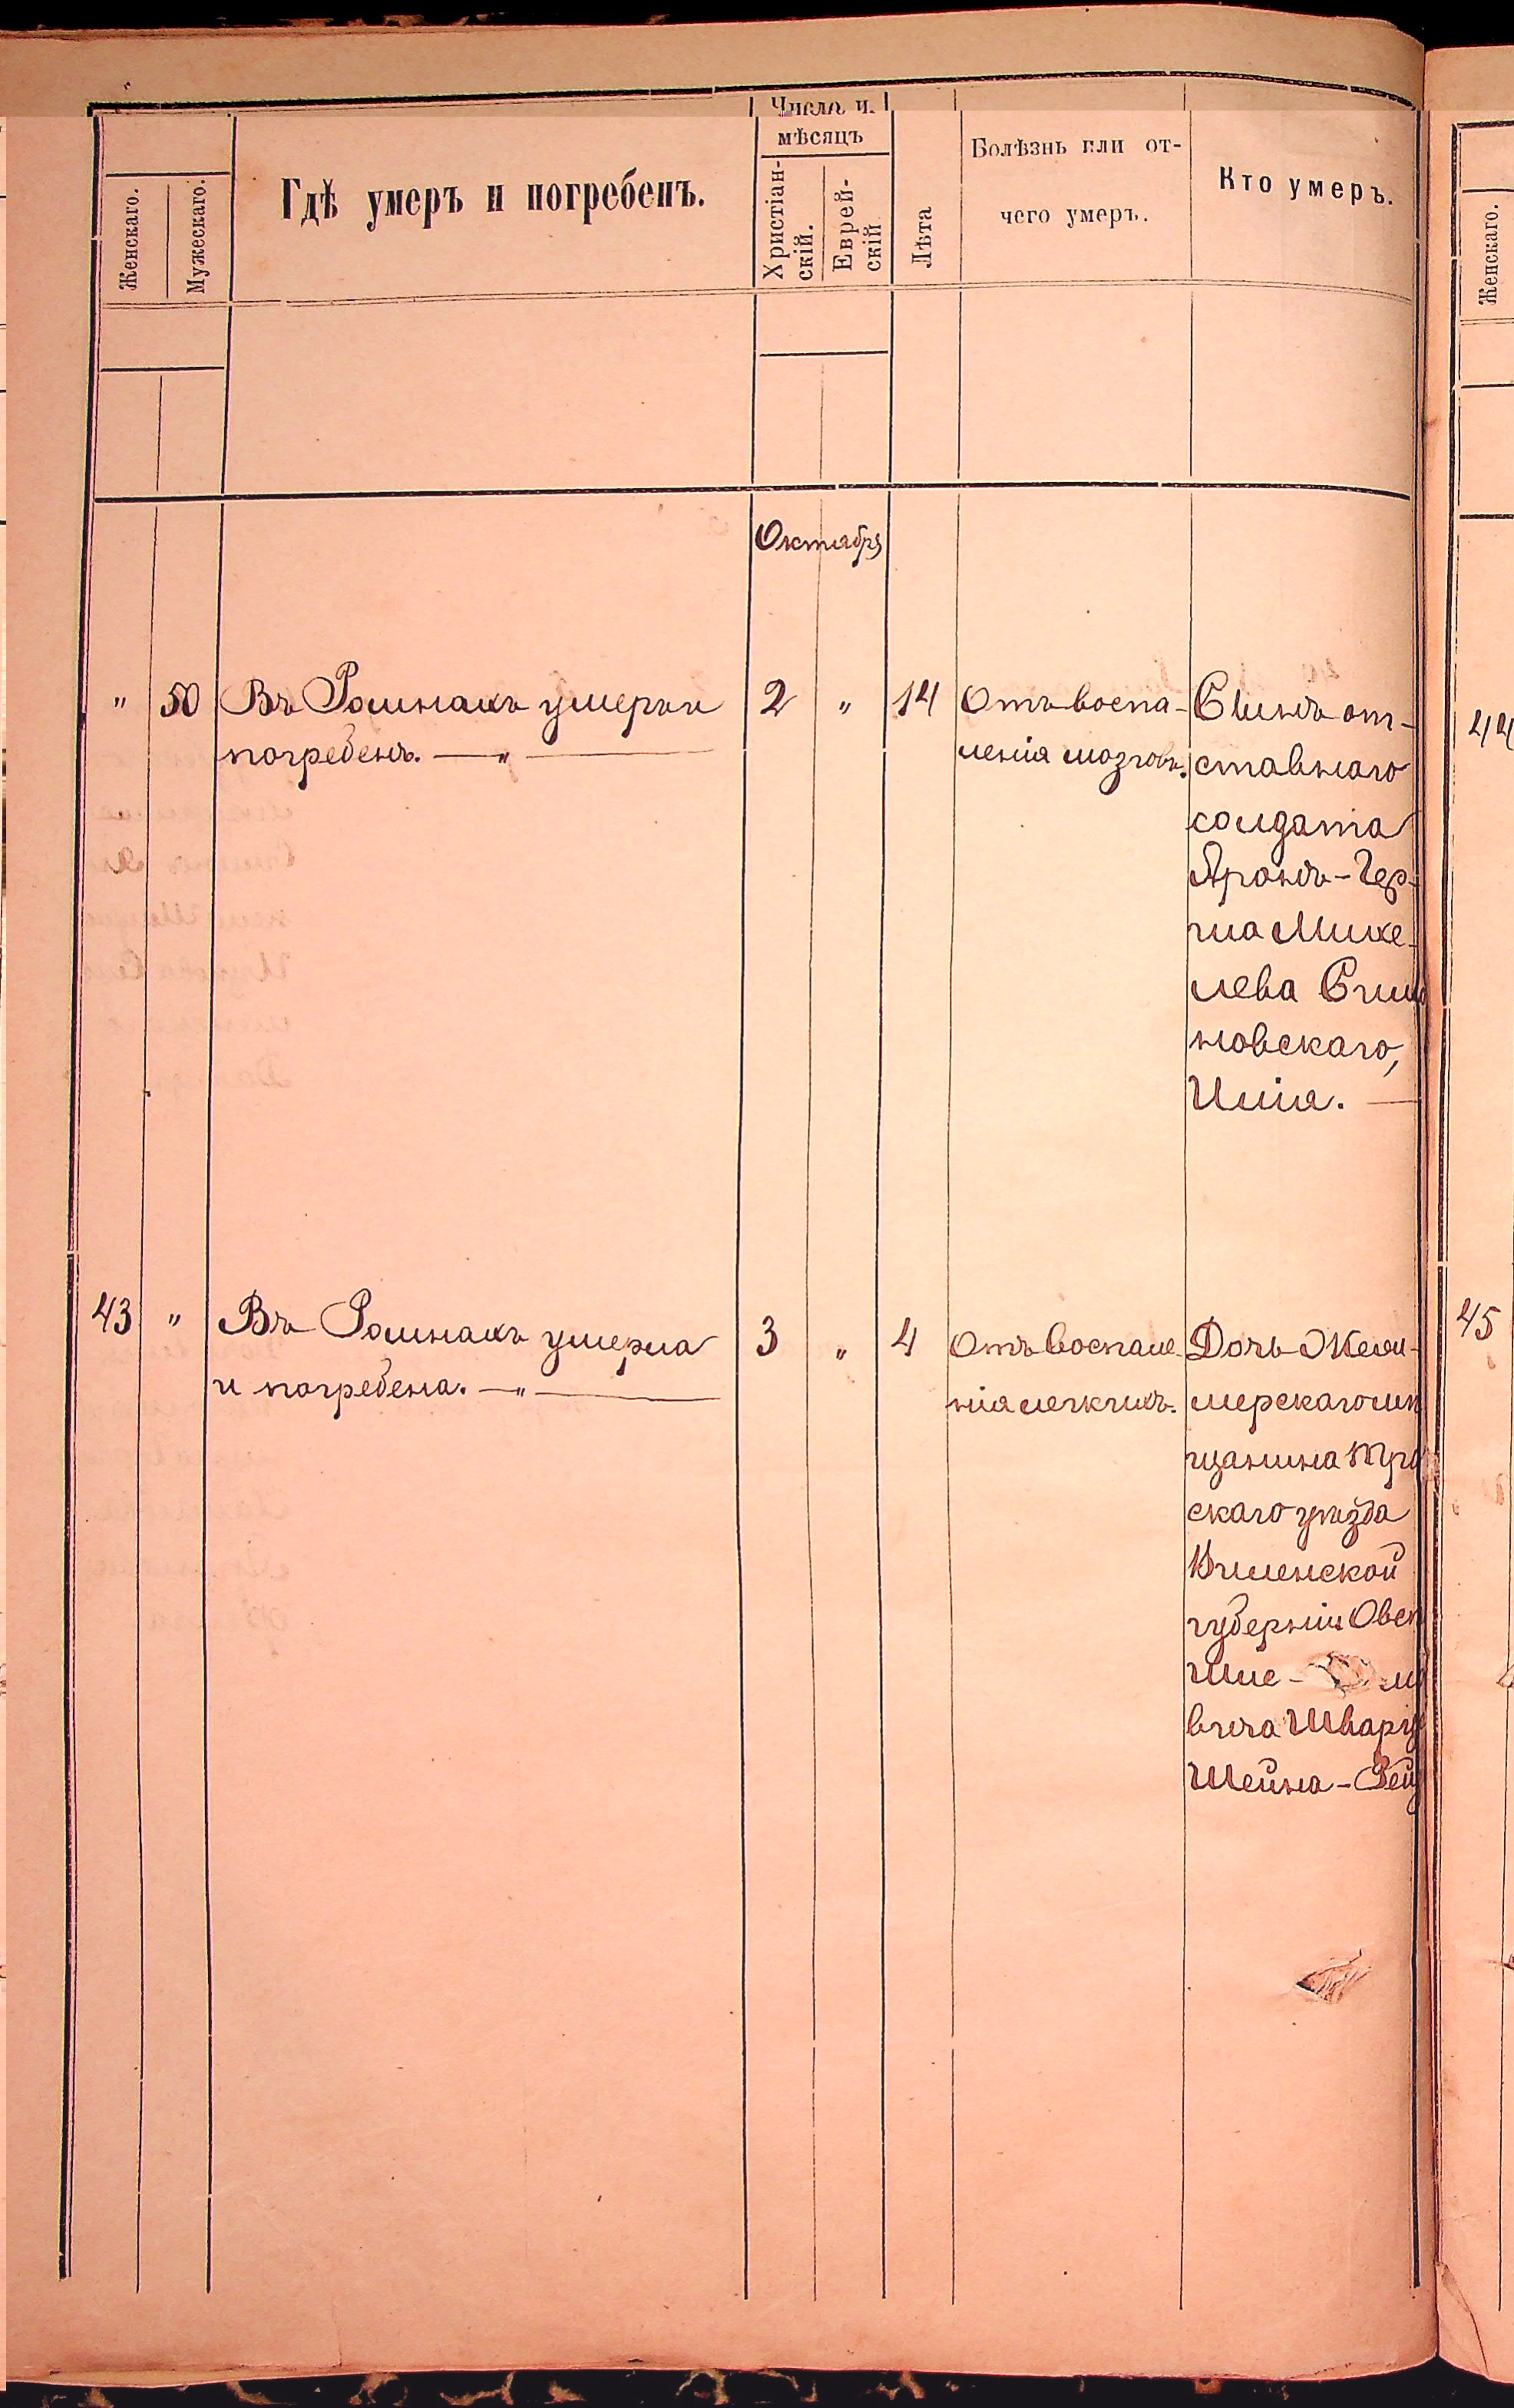 Женскаго.
Мужескаго.
Гдѣ умеръ и погребенъ.
Число и
мѣсяцъ
Христіан-
скій.
Еврей-
скій
Лѣта
Болѣзнь или от-
чего умеръ.
Кто умеръ.
Женскаго.
Октября
" 50 Въ Ромнахъ умеръ и
погребенъ. — " —
2 " 14
Отъ воспа-
ленія мозговъ.
Сынъ от-
ставнаго
солдата
Аронъ-Гер-
ша Михе-
лева
новскаго,
Илія. —
44
43 " Въ Ромнахъ умерла
и погребена. — " —
3 " 4
Отъ воспале-
нія легкихъ.
Дочь Жеж-
мерскаго мѣ
щанина Тро
скаго уѣзда
Виленской
губерніи Овс
Иле-
вича Шварц
Шейна-Рей
45